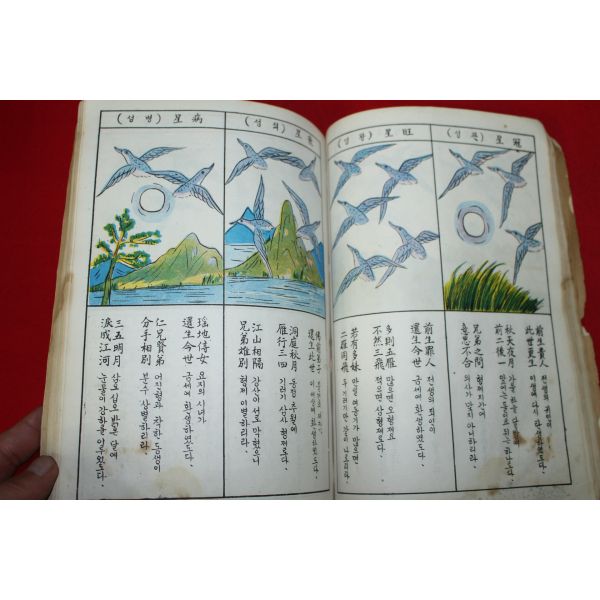 冠星 (관성)
前生貴人 전생의 귀인이
此世更生 이생에 다시 탄생하였도다.
秋天夜月 가을 하늘 달밤에
前二後一 앞에는 둘이요 뒤는 하나로다.
兄弟之間 형제지간에
意思不合 의사가 맞지 아니하리라.
旺星 (왕성)
前生罪人 전생의 죄인이
還生今世 금세에 환생하였도다.
多則五雁 많으면 오형제요
不然三飛 적으면 삼형제로다.
若有多妹 만일 여동생이 많으면
二雁同飛 두 기러기만 같이 나르리라.
星 (쇠성)
佛前弟子
還生此世 이 세상에 환생하였도다.
洞庭秋月 동정 추월에
雁行三四 기러기 삼사 형제로다.
江山相隔 강산이 서로 막혔으니
兄弟雄別 형제 이별하리라.
病星 (병성)
瑤地侍女 요지의 시녀가
還生今世 금세에 환생하였도다.
仁兄賢弟 어진형과 착한 동생이
分手相別 분수 상별하리라.
三五明月 삼오 십오 밝은 달에
淚成江河 눈물이 강하를 이루었도다.